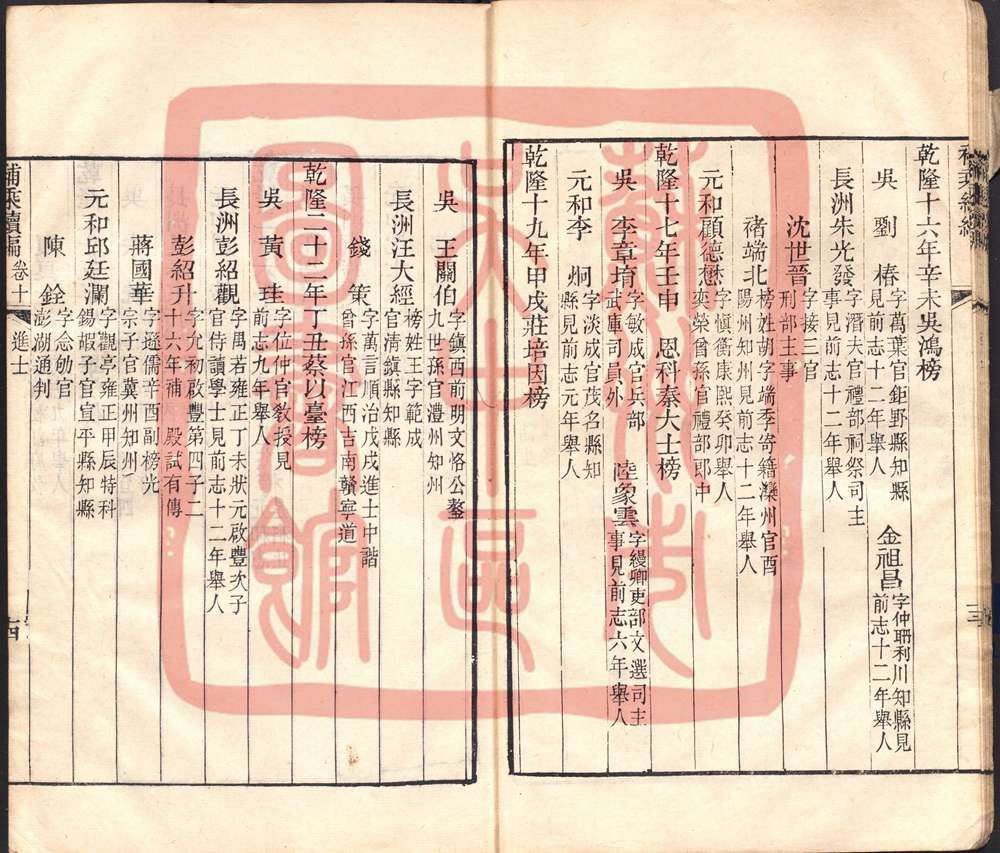 乾隆十六年辛未吳鴻榜
吳　劉　椿　字萬葉官鉅野縣知縣見前志十二年舉人　金祖昌　字仲珊利川知縣見前志十二年舉人
長洲朱光發　字潛夫官禮部祠祭司主事見前志十二年舉人
沈世晉　字接三官刑部主事
褚端北　榜姓胡字端季寄籍灤州官酉陽州知州見前志十二年舉人
元和顧德懋　字愼衡康熙癸卯舉人奕榮曾孫官禮部郎中
乾隆十七年壬申　恩科秦大士榜
吳　李章堉　字敏成官兵部武庫司員外　陸象雲　字縵卿吏部文選司主事見前志六年舉人
元和李　炯　字淡成官茂名縣知縣見前志元年舉人
乾隆十九年甲戌莊培因榜
吳　王關伯　字鎮西前明文恪公鏊九世孫官澧州知州
長洲汪大經　榜姓王字範成官清鎮縣知縣
錢　策　字萬言順治戊戌進士中諧曾孫官江西吉南贛寧道
乾隆二十二年丁丑蔡以臺榜
吳　黃　珪　字位仲官敎授見前志九年舉人
長洲彭紹觀　字禺若雍正丁未狀元啟豐次子官侍讀學士見前志十二年舉人
彭紹升　字允初啟豐第四子二十六年補　殿試有傳
蔣國華　字遜儒辛酉副榜光宗子官冀州知州
元和邱廷瀾　字觀亭雍正甲辰特科錫嘏子官宣平縣知縣
陳　銓　字念劬官澎湖通判
補乘續編　卷十　進士
蘇州市吳中區圖書館